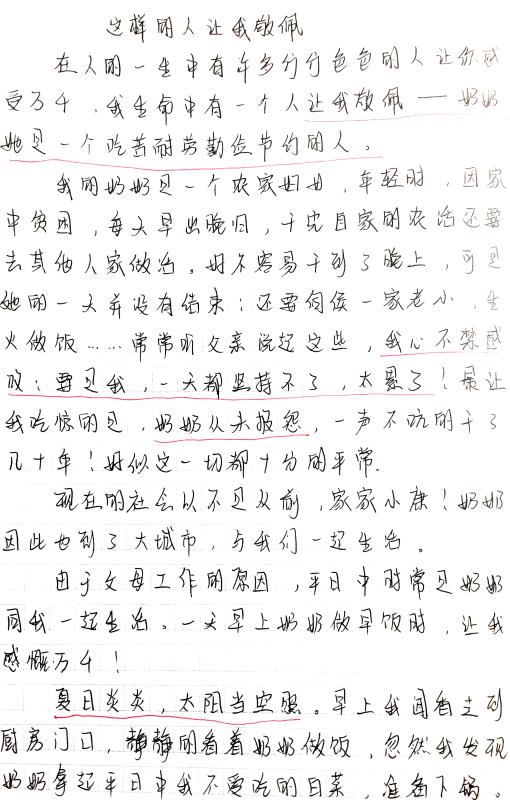 这样的人让我敬佩
在人的一生中有许多行行色色的人让你感
受万千，我生命中有一个人让我敬佩——奶奶
她是一个吃苦耐劳勤俭节约的人。
我的奶奶是一个农家妇女，年轻时，因家
中贫困，每天早出晚归，干完自家的农活还要
去其他人家做活。好不容易干到了晚上，可是
她的一天并没有结束：还要伺侯一家老小，生
火做饭……常常听父亲说起这些，我心不禁感
叹：要是我，一天都坚持不了，太累了！最让
我吃惊的是，奶奶从未报怨，一声不吭的干了
几十年！好似这一切都十分的平常.
现在的社会以不是从前，家家小康！奶奶
因此也到了大城市，与我们一起生活。
由于父母工作的原因，平日中时常是奶奶
同我一起生活。一天早上奶奶做早饭时，让我
感慨万千！
夏日炎炎，太阳当空照。早上我闻香走到
厨房门口，静静的看着奶奶做饭，忽然我发现
奶奶拿起平日中我不爱吃的白菜，准备下锅。